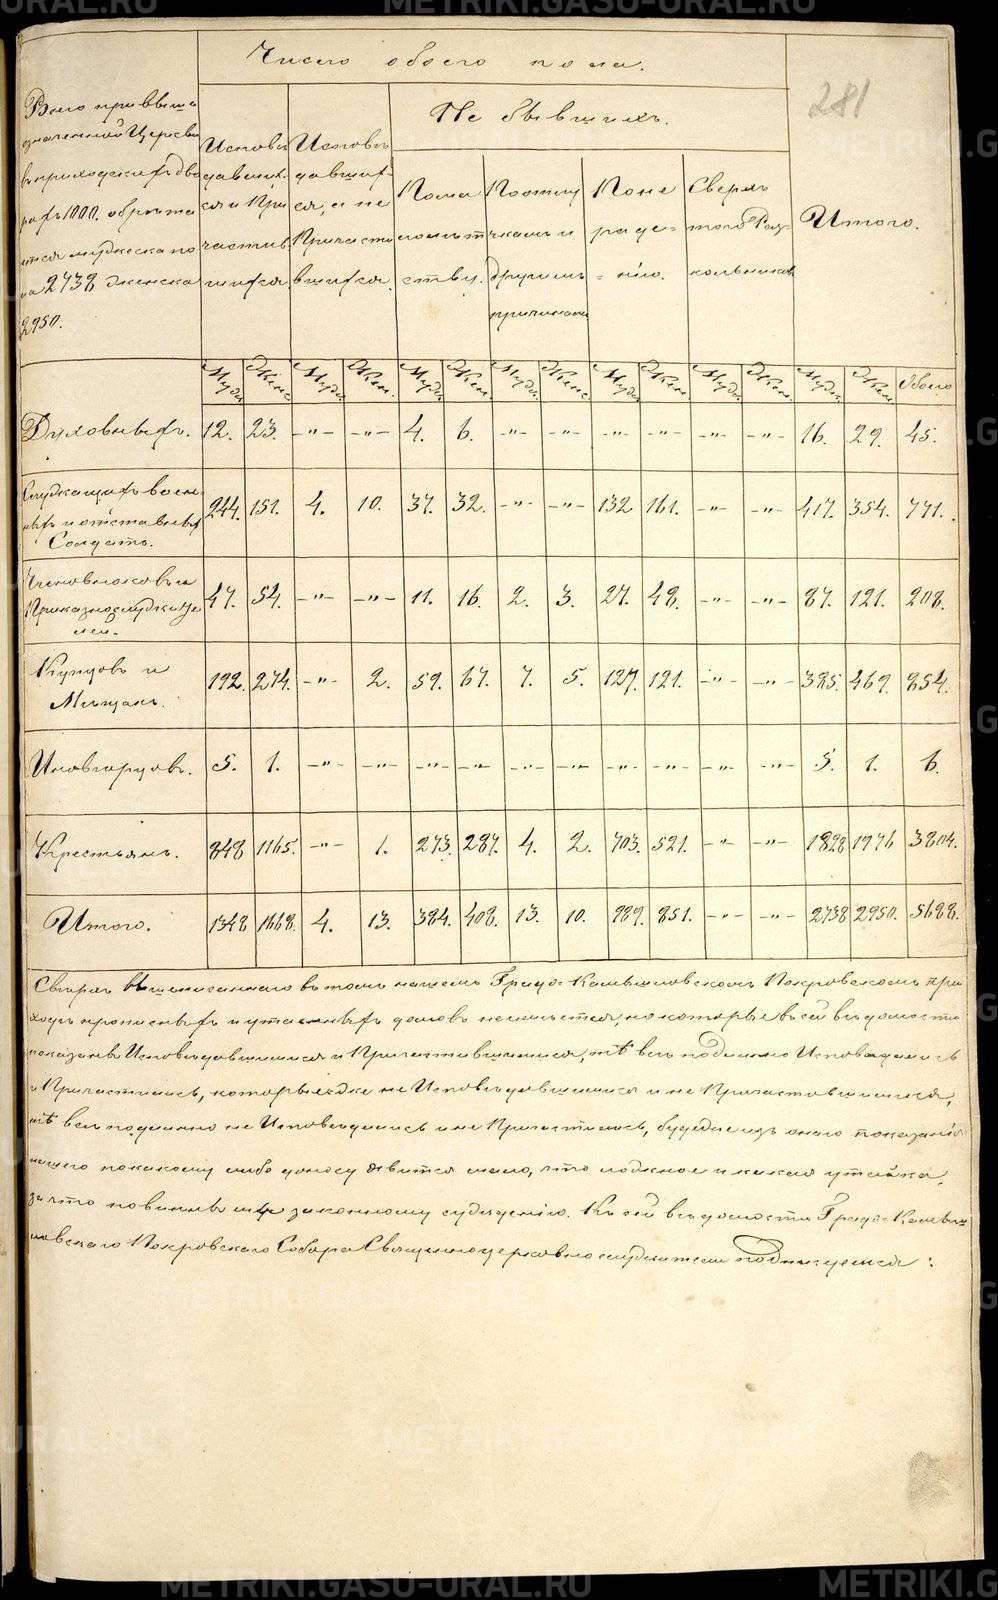 METRIKI.GASU-URAL.RU
281
Число обоего пола.
Всего при выше
означенной Церкви
въ приходскихъ дво
рахъ 1000. обрета
ется мужеска по
ла 2738 женска
2950.
Испове
давших
ся и При
частив
шихся
Исповѣ
давших
ся, а не
Причасти
вшихся.
Не бывшихъ.
Помa
лолѣт
ству.
По отлу
чкамъ и
другимъ
причинамъ
По не
раде=
=нію.
Сверхъ
того Рас
кольниковъ
Итого.
Муж. Жен. Муж. Жен. Муж. Жен. Муж. Жен. Муж. Жен. Муж. Жен. Муж. Жен. Обоего
Духовныхъ. 12. 23. -"- -"- 4. 6. -"- -"- -"- -"- -"- -"- 16. 29. 45.
Служащихъ воен
ныхъ и отставныхъ
Солдатъ. 244. 151. 4. 10. 37. 32. -"- -"- 132 161. -"- -"- 417. 354. 771.
Чиновниковъ и
Приказнослужите
лей. 47. 54. -"- -"- 11. 16. 2. 3. 27. 48. -"- -"- 87. 121. 208.
Купцовъ и
Мещанъ. 192. 274. -"- 2. 59. 67. 7. 5. 127. 121. -"- -"- 385. 469. 854.
Иновѣрцовъ. 5. 1. -"- -"- -"- -"- -"- -"- -"- -"- -"- -"- 5. 1. 6.
Крестьянъ. 848 1165. -"- 1. 273. 287. 4. 2. 703. 521. -"- -"- 1828 1976 3804.
Итого. 1348 1668. 4. 13. 384. 408. 13. 10. 989. 851. -"- -"- 2738 2950. 5688.
Сверхъ вышеписаннаго въ томъ нашемъ Градо=Камышловскомъ Покровскомъ при
ходѣ прописныхъ и утаенныхъ домовъ неимѣется, но которые въ сей вѣдомости
показаны Исповѣдавшимися и Причастившимися, тѣ всѣ подлинно Исповедались
и Причастились, которыеже не Исповѣдовшимися и не Причастовшимися,
тѣ всѣ подлинно не Исповѣдались и не Причастились, будеже изъ онаго показанія
нашего по какому либо доносу явится мало, что ложное и какая утайка,
за что повинны мы законному суждению. Къ сей вѣдомости Градо=Камыш
ловскаго Покровскаго Собора Священноцерковнослужители подписуемся: